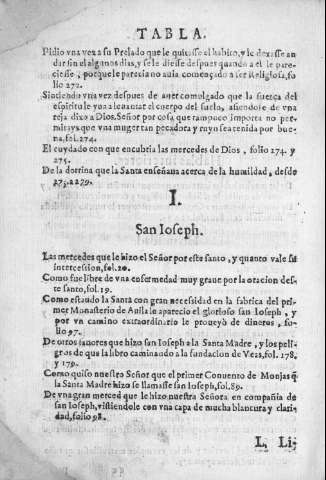 TABLA.
Pidio vna vez a su Prelado que le quitasse el habito, y le dexasse an
dar sin el algunos dias, y se le diesse despues quando a el le pare-
ciesse, porque le parecia no auia començado a ser Religiosa, fo
lio 272.
Sintiendo vna vez despues de auer comulgado que la fuerça del
espiritu le yua a leuantar el cuerpo del suelo, asiendose de vna
reja dixo a Dios, Señor por cosa que tampoco importa no per-
mitays que vna muger tan pecadora y ruyn sea tenida por bue-
na, fol. 274.
El cuydado con que encubria las mercedes de Dios, folio 274. y
275.
De la dotrina que la Santa enseñaua acerca de la humildad, desde
275. a 279.
I.
San Ioseph.
Las mercedes que le hizo el Señor por este santo, y quanto vale su
intercession, fol. 20.
Como fue libre de vna enfermedad muy graue por la oracion des-
te santo, fol. 19.
Como estando la Santa con gran necessidad en la fabrica del pri
mer Monasterio de Auila le aparecio el glorioso san Ioseph, y
por vn camino extraordinario le proueyò de dineros, fo-
lio 97.
De otros fauores que hizo san Ioseph a la Santa Madre, y los peli
gros de que la libro caminando a la fundacion de Veas, fol. 178.
y 179.
Como quiso nuestro Señor que el primer Conuento de Monjas q̃
la Santa Madre hizo se llamasse san Ioseph, fol. 89.
De vna gran merced que le hizo nuestra Señora en compañia de
san Ioseph, vistiendole con vna capa de mucha blancura y clari
dad, folio 98.
L, Li-